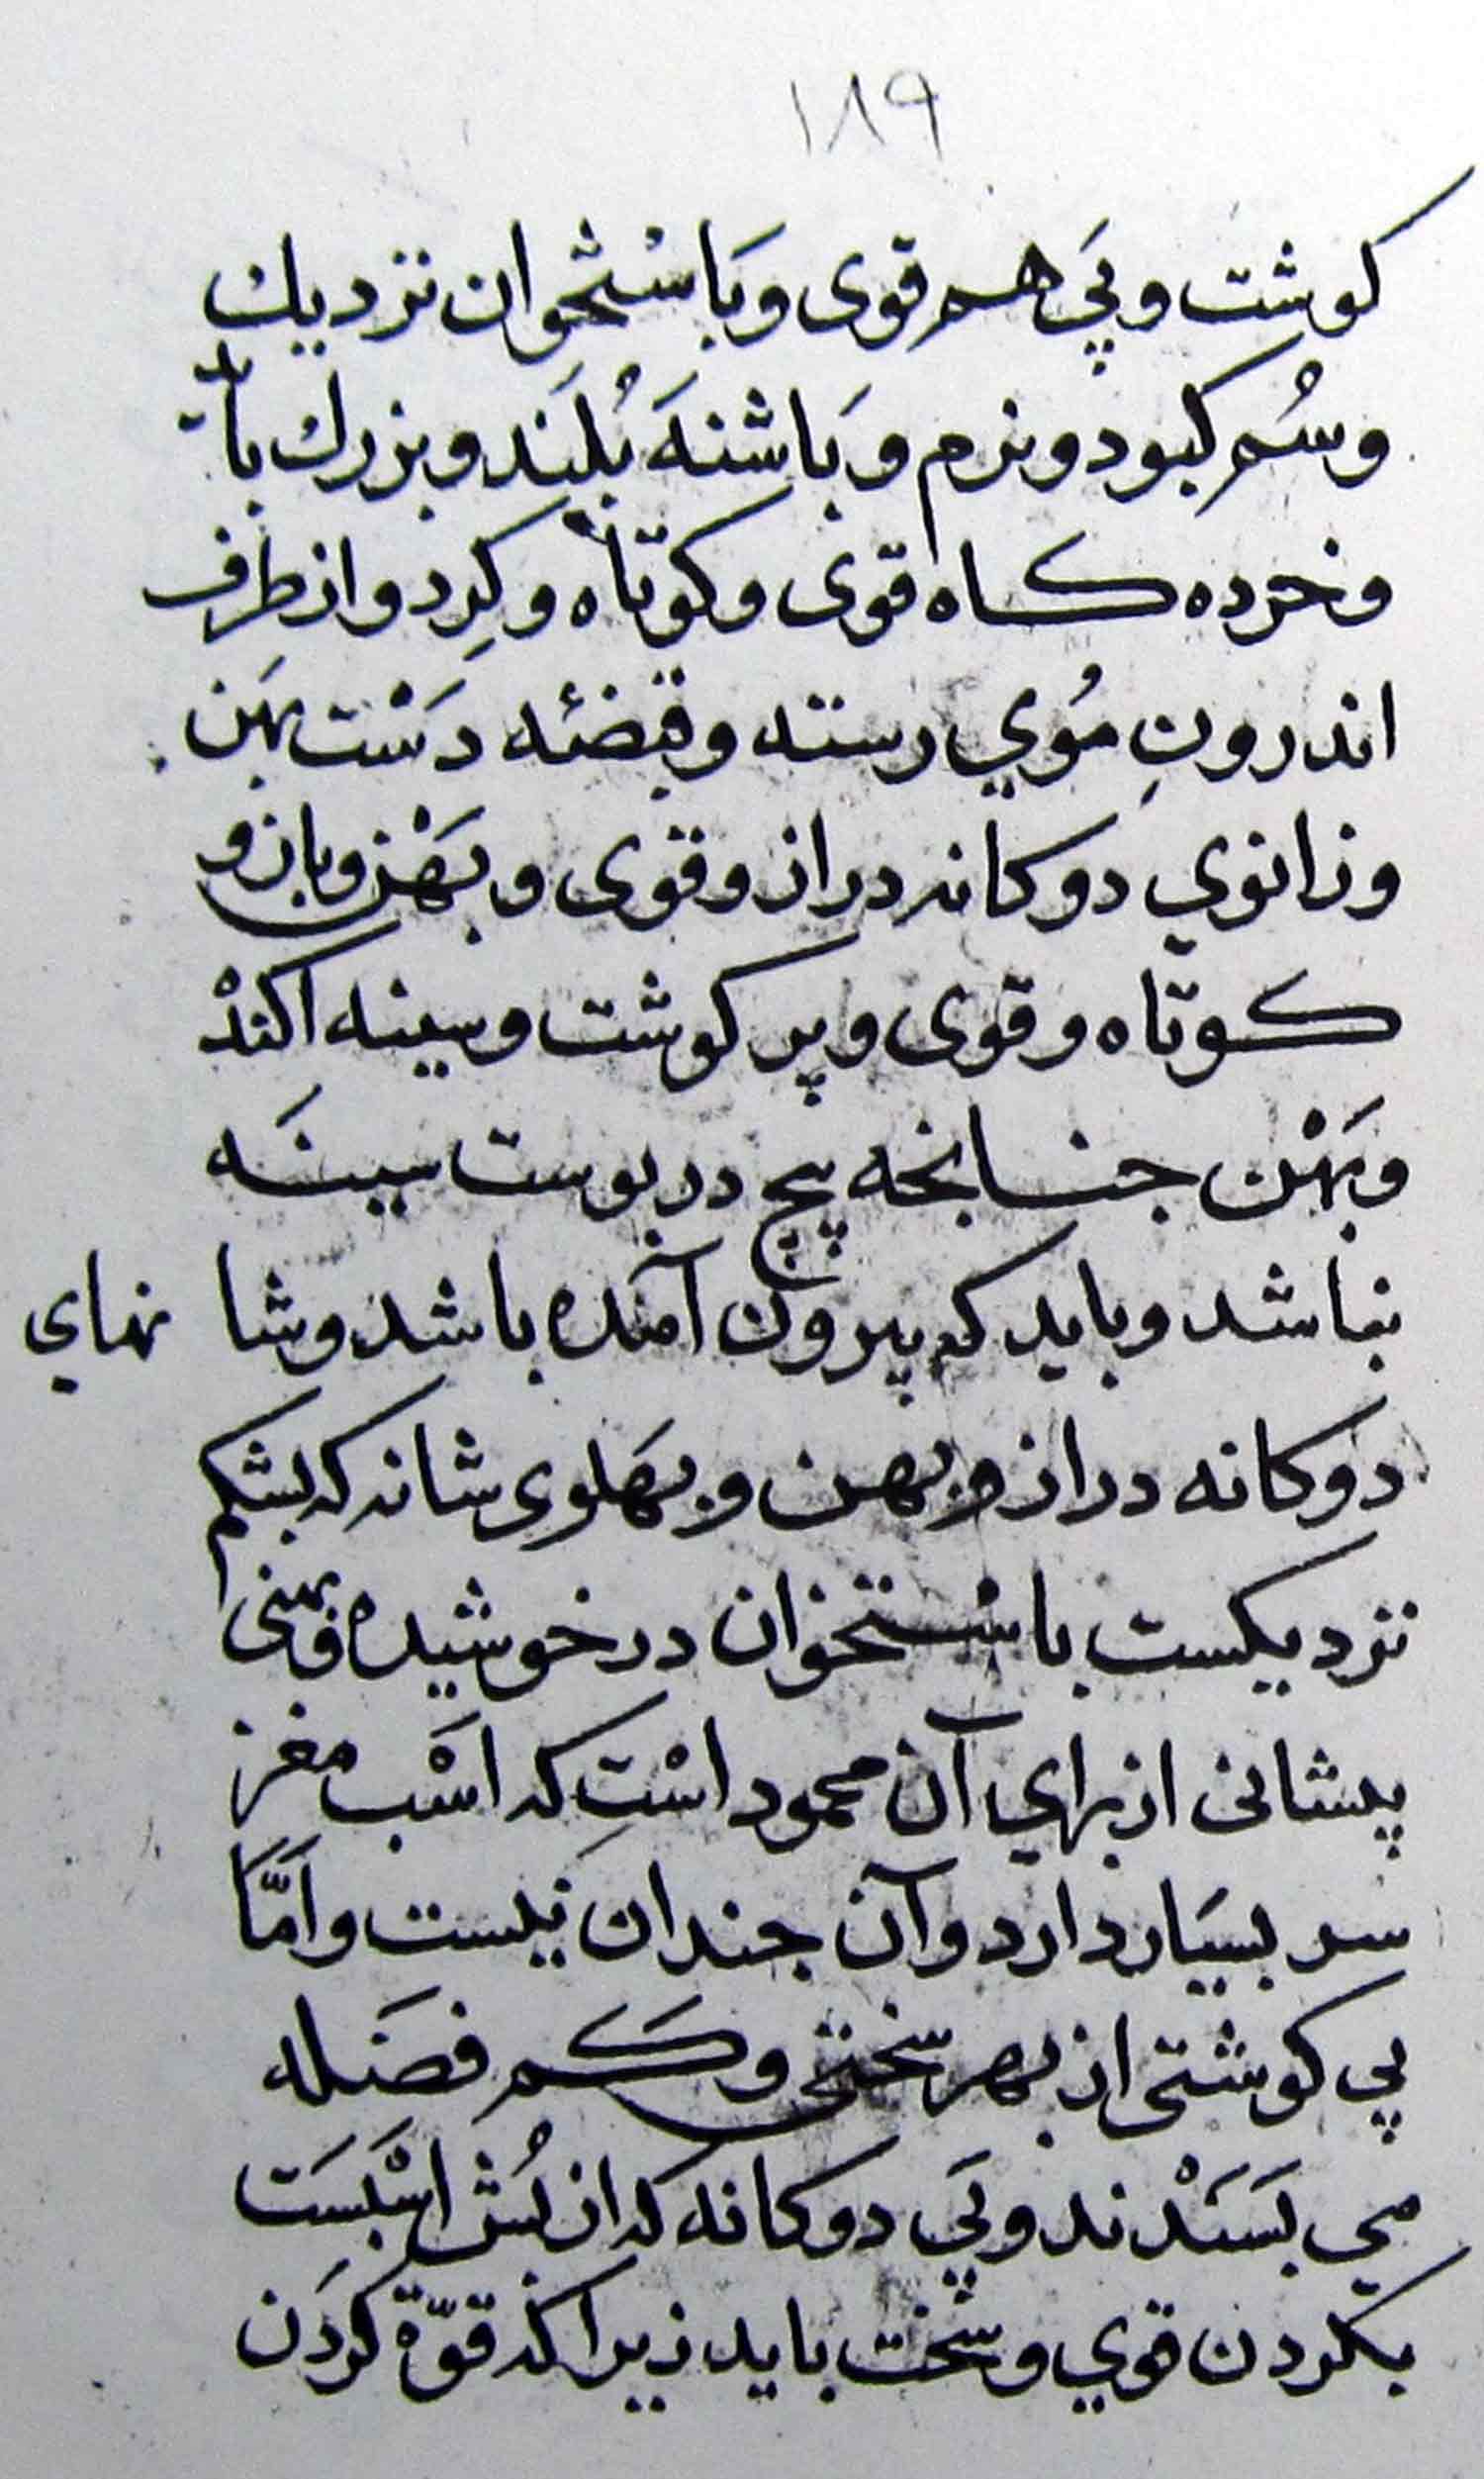 ۱۸۹
كوشت و پَي هم قوى و بَاسْتخوان نزديك
و سُم كبود و نرم و بَاشنهَ بُلَند و بزرك با
و خرده كاه قوى و كوتاه و كِرد و از طرف
اندرونِ مُوي رسته و قبضئه دَسْت پهَن
و زانوي دوكانه دراز و قوى و بهَْن و بازو
كوتاه و قوى و پر كوشت و سينه اكندْ
و بهَْن جنانجه پيچ در پوست سينَه
نباشد و بايد كه پيرون آمده باشد و شا نهاي
دوكانه دراز و بهن و بهَلوى شانه كه بشكم
نزديكست باسْتخوان در خوشيده و بهنى
پيشانى از براي آن محمود اسْتِ كه اسَْب مغز
سر بسيَار دارد و آن جندان نيست و امَّا
پي كوشتى از بهر سختى و كَم فضَله
مي بسَنَدْند و پَي دوكانه كه از بُش اسْبَست
بكردن قوي و سخت بايد زيرا كه قوّة كردَن